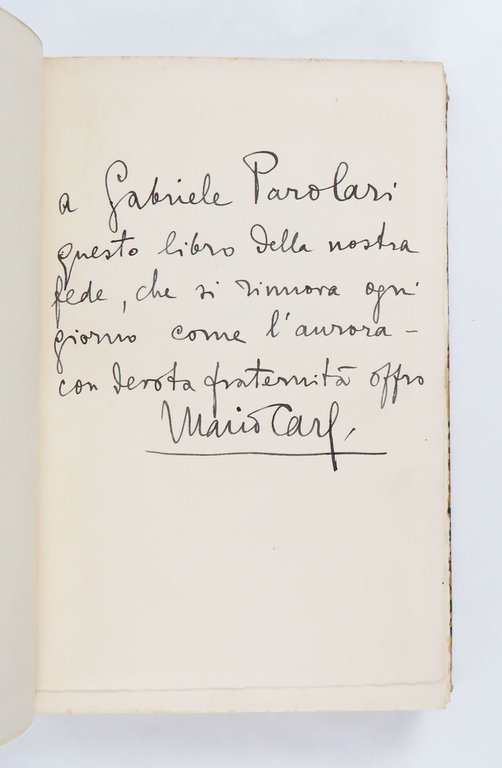 a Gabriele Parolari
questo libro della nostra
fede, che si rinnova ogni
giorno come l'aurora -
con devota fraternità offro
Mario Carli